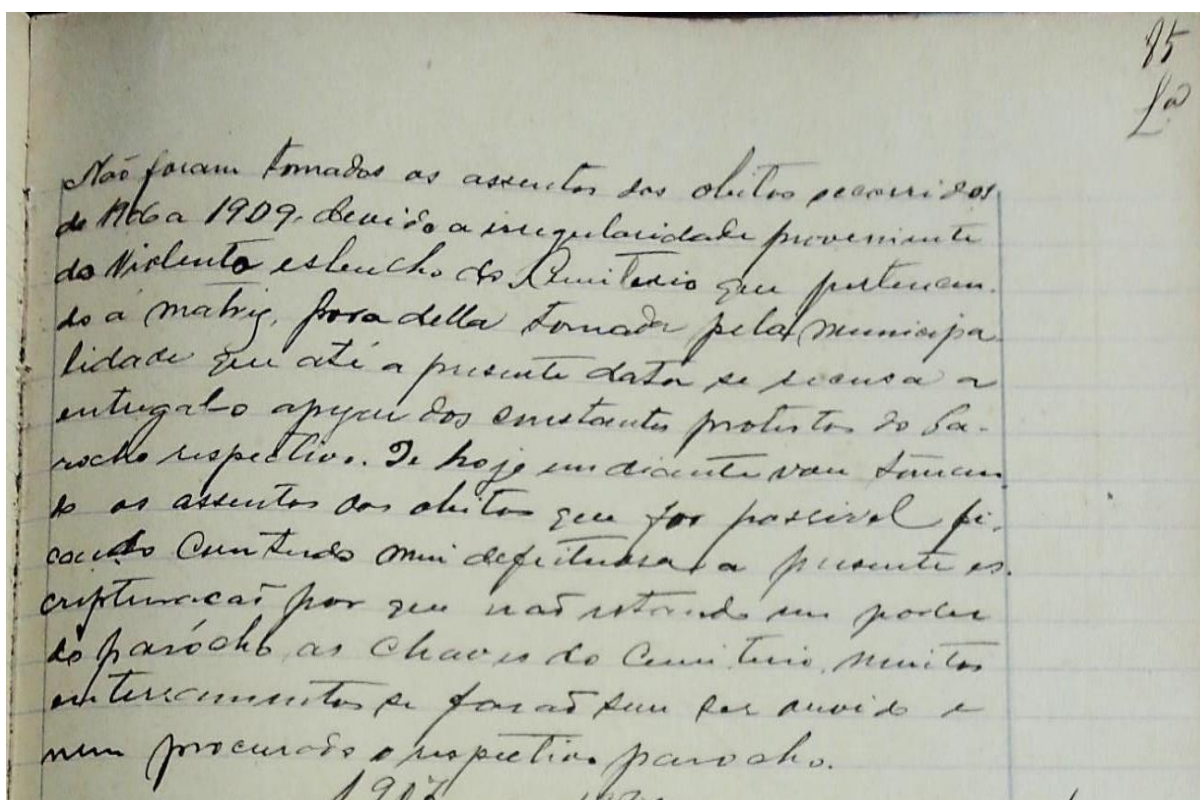 85
Não foram tomados os assentos dos obitos occorridos
de 1906 a 1909. devido a irregularidade proveniente
do Violento esbucho do Cemiterio que pertencen-
do á matriz, fora della tomado pela municipa
lidade que até a presente data se recusa a
entregal-o apezar dos constantes protestos do Pa-
rocho respectivo. De hoje em diante vou toman
do os assentos dos obitos que for possivel fi-
cando Contudo mui defeituosa a presente es-
cripturacaõ por que naõ estando em poder
do parócho as Chaves do Cemiterio, muitos
enterramentos se faraõ sem ser ouvido e
nem procurado o respectivo parocho.